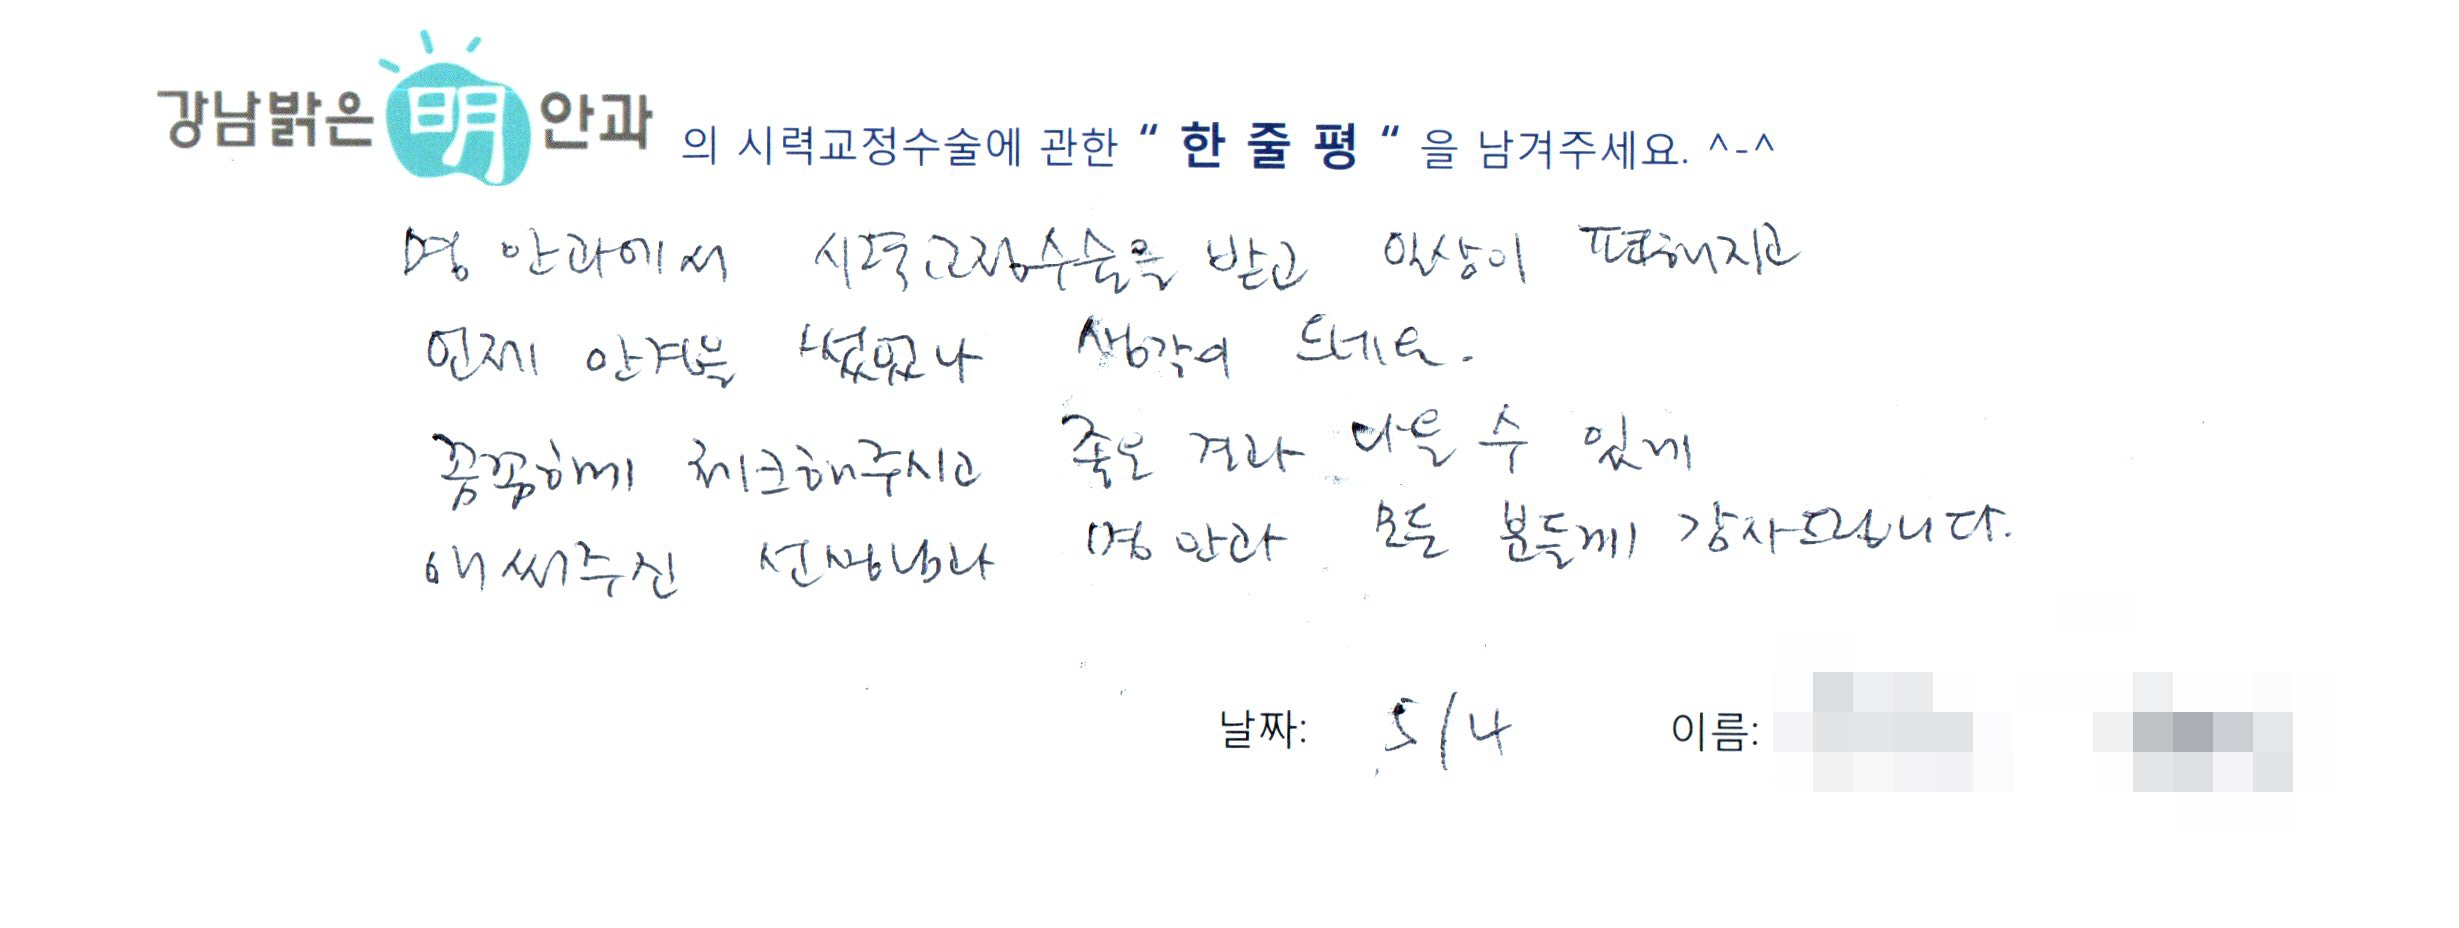 강남밝은明안과 의 시력교정수술에 관한 “ 한 줄 평 “ 을 남겨주세요. ^-^
명 안과에서 시력교정수술을 받고 일상이 편해지고
언제 안경을 썼었나 생각이 드네요.
꼼꼼하게 체크해주시고 좋은 결과 나올 수 있게
애써주신 선생님과 명 안과 모든 분들께 감사드립니다.
날짜: 5/4 이름: